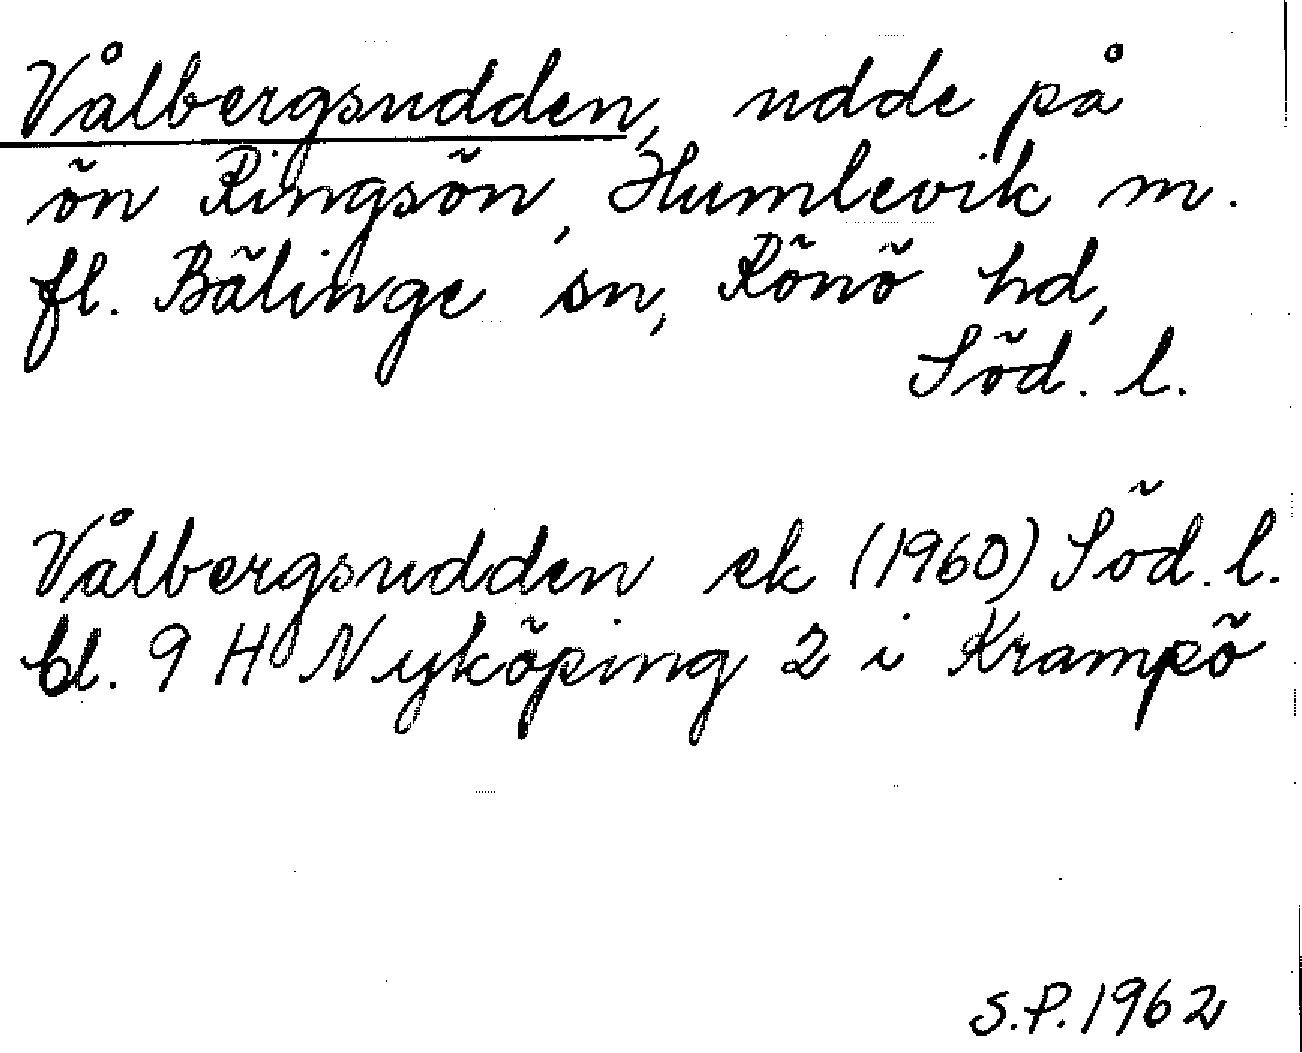 Vålbergsudden, udde på
ön Ringsön, Humlevik m.
fl. Bälinge sn, Rönö hd,
Söd. l.
Vålbergsudden ek (1960) Söd. l.
bl. 9 H Nyköping 2 i Krampö
S.P. 1962